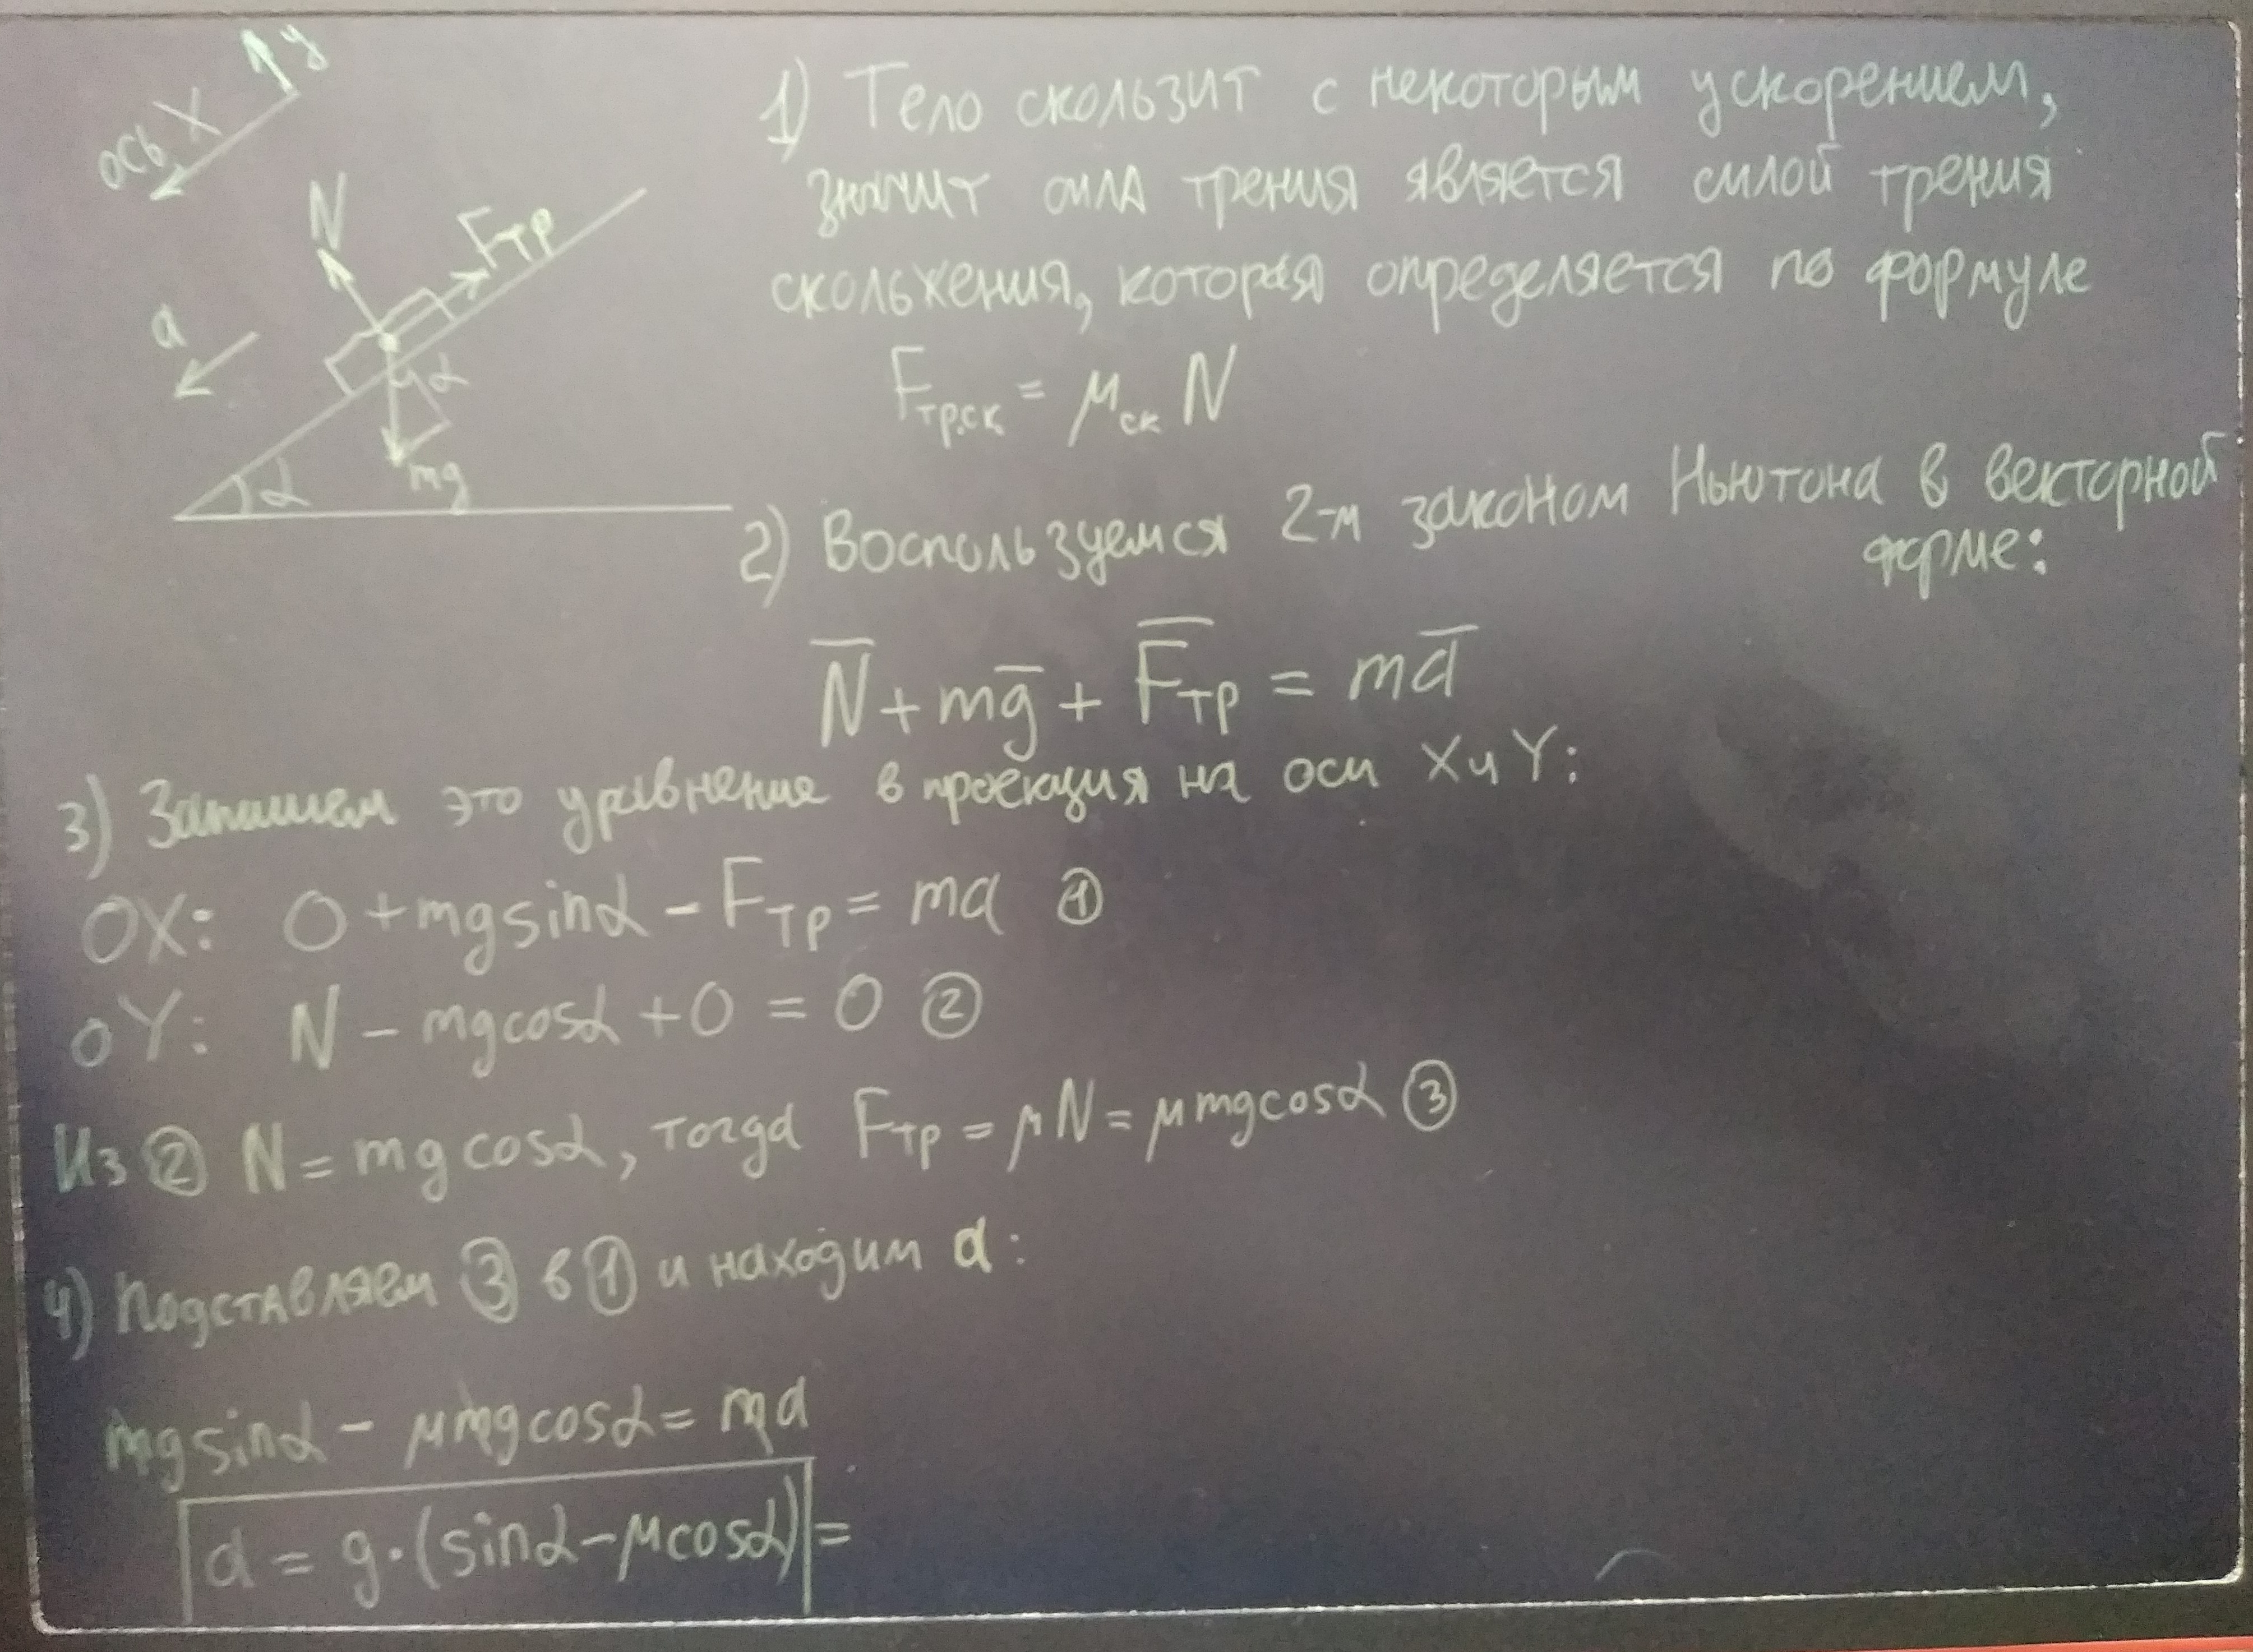 ось X
y
N
Fтр
a
α
mg
α
1) Тело скользит с некоторым ускорением,
значит сила трения является силой трения
скольжения, которая определяется по формуле
Fтр.ск = μск N
2) Воспользуемся 2-м законом Ньютона в векторной
форме:
N̅ + mg̅ + F̅тр = ma̅
3) Запишем это уравнение в проекция на оси X и Y:
OX: 0 + mgsinα - Fтр = ma ①
OY: N - mgcosα + 0 = 0 ②
Из ② N = mgcosα, тогда Fтр = μN = μmgcosα ③
4) Подставляем ③ в ① и находим a:
mgsinα - μmgcosα = ma
a = g·(sinα - μcosα) =